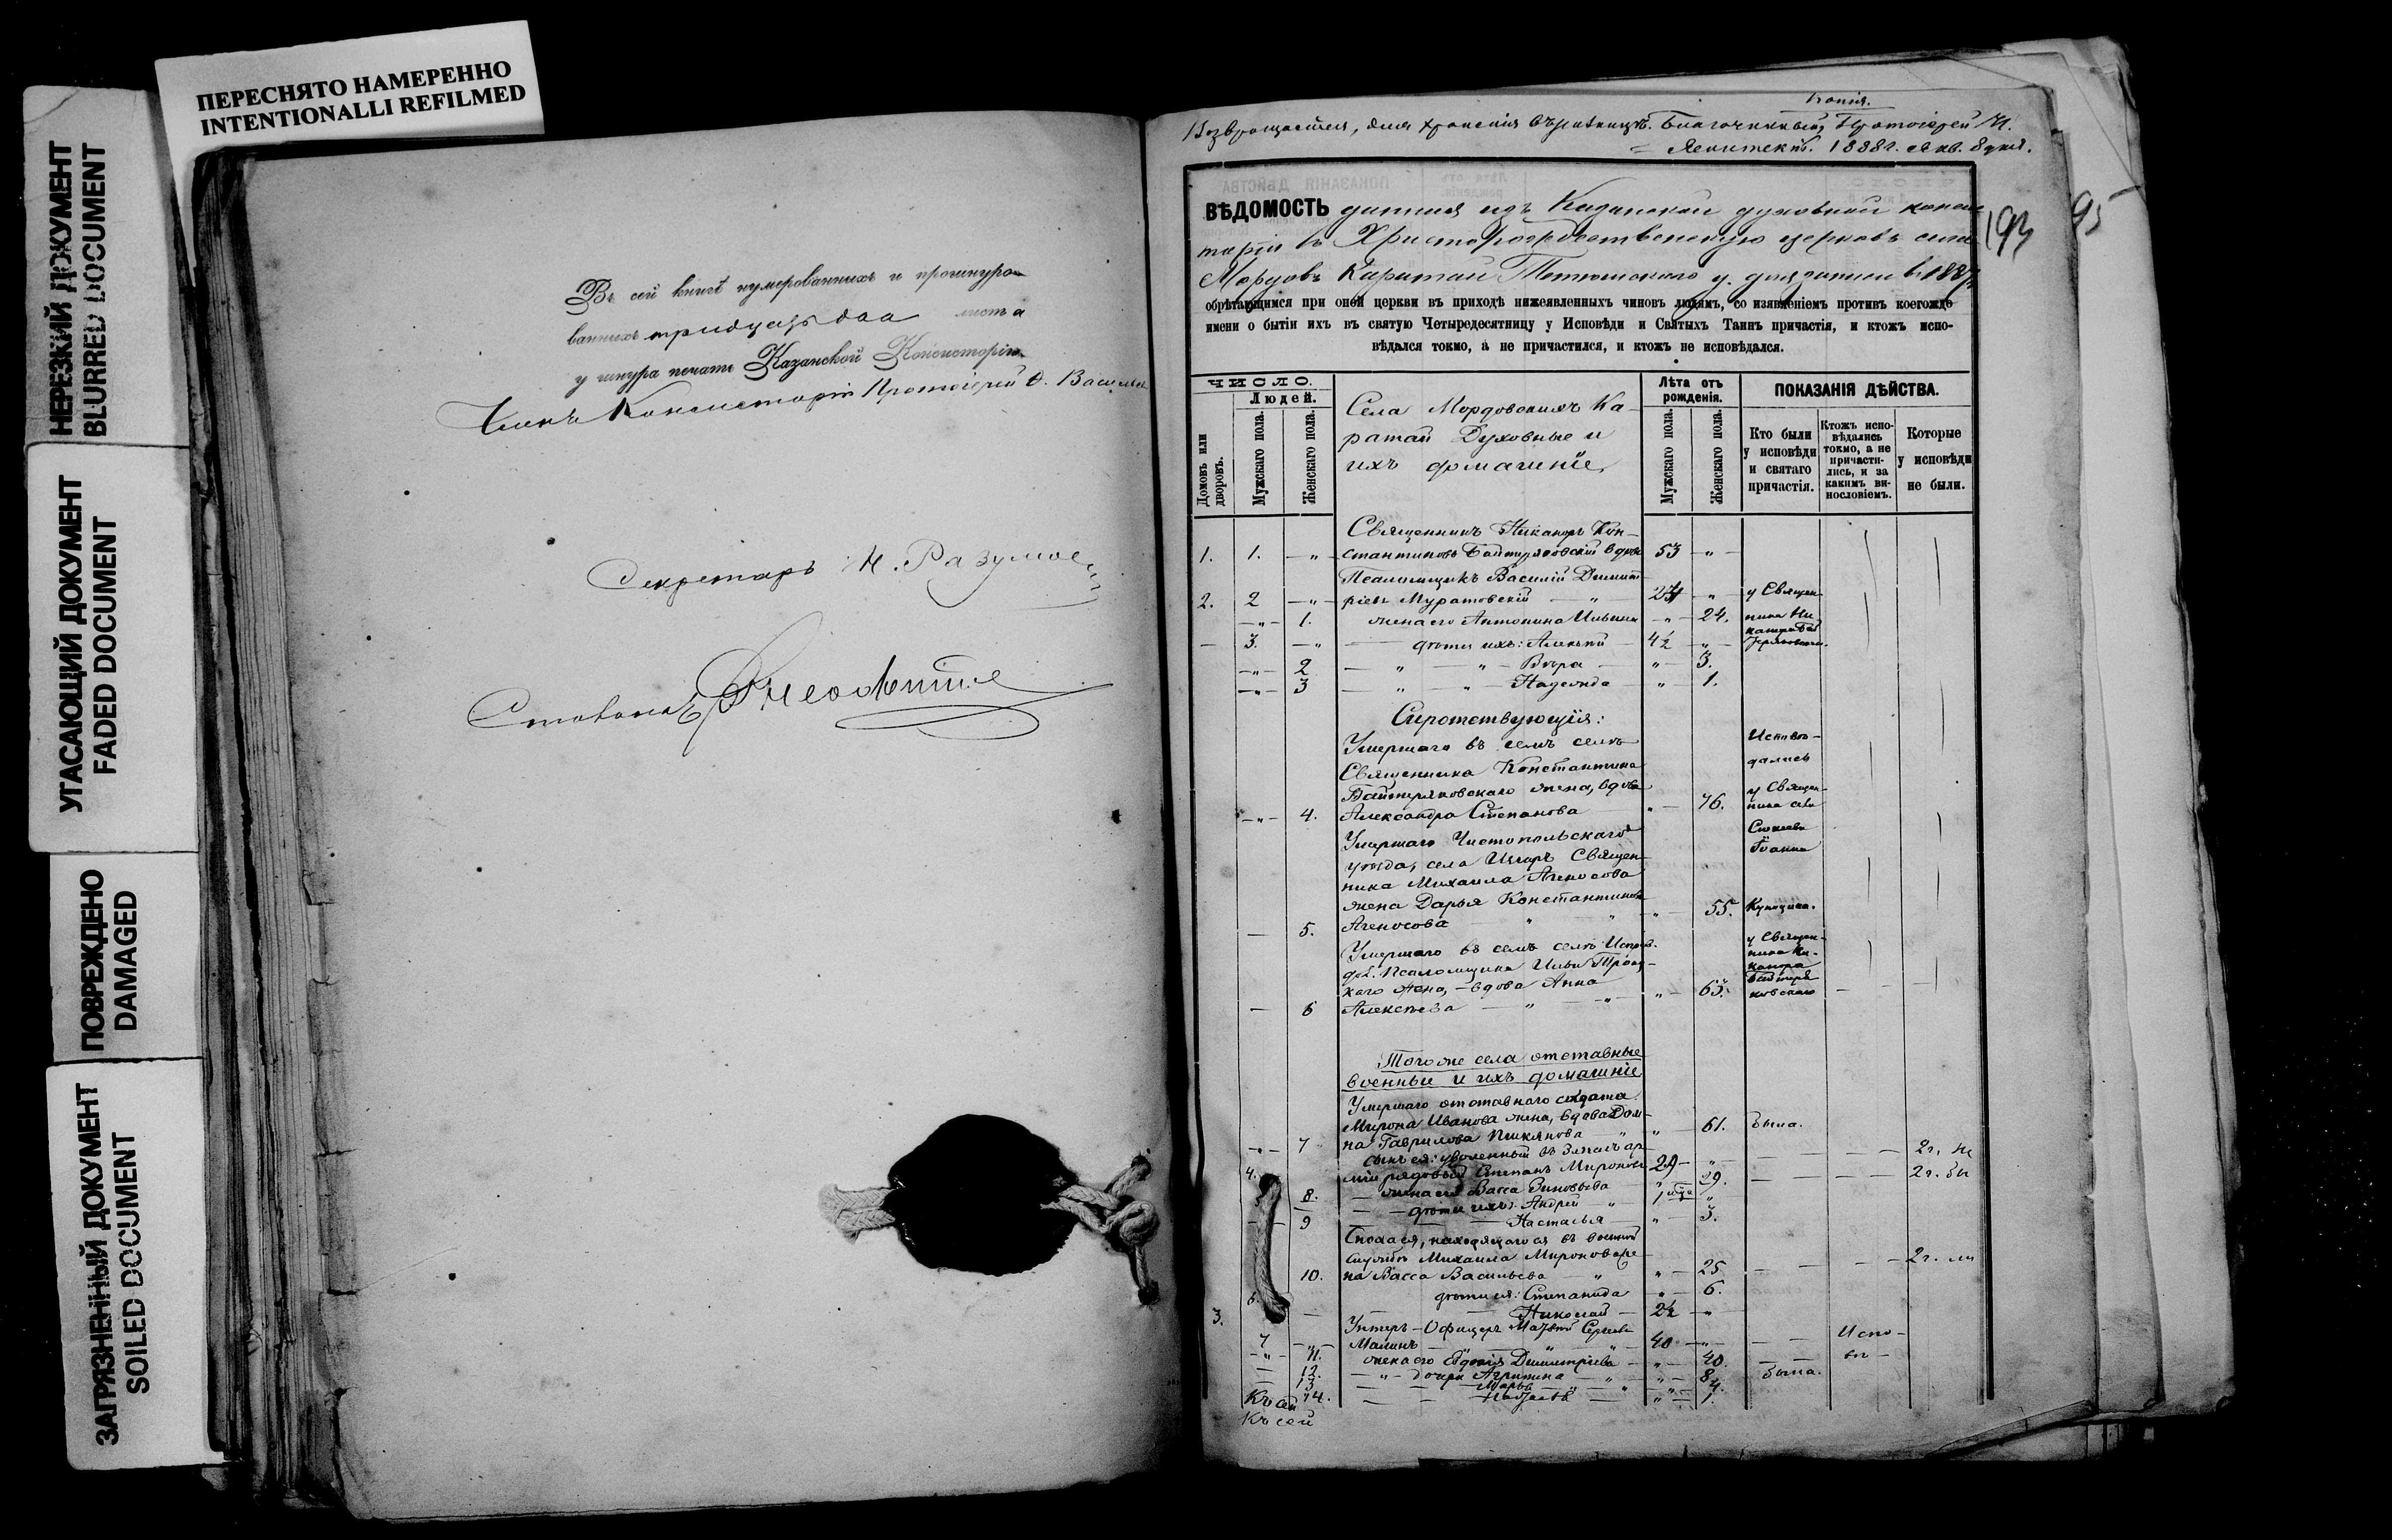 ПЕРЕСНЯТО НАМЕРЕННО
INTENTIONALLI REFILMED
НЕРЕЗКИЙ ДОКУМЕНТ
BLURRED DOCUMENT
УГАСАЮЩИЙ ДОКУМЕНТ
FADED DOCUMENT
ПОВРЕЖДЕНО
DAMAGED
ЗАГРЯЗНЕННЫЙ ДОКУМЕНТ
SOILED DOCUMENT
Въ сей книгѣ нумерованныхъ и прошнуро-
ванныхъ тридцать два листа
у шнура печать Казанской Консисторіи.
Членъ Консисторіи Протоіерей
Секретарь Н.
Копія.
Возвращается, для храненія въ Благочинный, Протоіерей
1888г. Янв. 8 дня.
ВѢДОМОСТЬ данная изъ Казанской духовной консис
торіи въ Христорождественскую церковь села
Мордов. Каратаи Тетюшскаго у. для записи въ 1887г.
обрѣтающимся при оной церкви въ приходѣ нижеявленныхъ чиновъ людямъ, со изявленіемъ противъ коегождо
имени о бытіи ихъ въ святую Четыредесятницу у Исповѣди и Святыхъ Таинъ причастія, и ктожъ испо-
вѣдался токмо, а не причастился, и ктожъ не исповѣдался.
193
95
ЧИСЛО.
Людей.
Домовъ или дворовъ.
Мужскаго пола.
Женскаго пола.
Села Мордовскихъ Ка-
ратай Духовные и
ихъ домашніе,
Лѣта отъ рожденія.
Мужскаго пола.
Женскаго пола.
ПОКАЗАНІЯ ДѢЙСТВА.
Кто были у исповѣди и святаго причастія.
Ктожъ испо-вѣдались токмо, а не причасти-лись, и за какимъ ви-нословіемъ.
Которые у исповѣди не были.
Священникъ Никаноръ Кон-
1. 1. — „ — стантиновъ Байтеряковскій вдовъ 53 — „ —
Псаломщикъ Василій Димит-
2. 2 — „ — ріевъ Муратовскій — „ — „ у Священ-
— „ — 1. жена его Антонина Ильина — „ — 24. ника Ни-
— 3. — „ дѣти ихъ: Алексѣй 4½ — „ —
— „ — 2 — „ — „ — Вѣра — „ — 3.
— „ — 3 — „ — „ — Надежда — „ — 1.
Сиротствующія:
Умершаго въ семъ селѣ Исповѣ-
Священника Константина дались
Байтеряковскаго жена, вдова у Священ-
— „ — 4. Александра Степанова „ — 76. ника села
Умершаго Чистопольскаго
уѣзда, села Священ- Іоанна
ника Михаила
жена Дарья Константинова
— 5. „ „ „ — 55.
Умершаго въ семъ селѣ у Священ-
Псаломщика Ильи Троиц- ника Ни-
каго жена, — вдова Анна канора
— 6 Алексѣева — „ — „ — „ — 63. Байтеря-
ковскаго
Тогоже села отставные
военные и ихъ домашніе
Умершаго отставнаго солдата
Мирона Иванова жена, вдова Дом-
— „ — 7 на Гаврилова „ — 61. была.
сынъ ея: уволенный въ запасъ ар-
4. міи рядовой Степанъ Мироновъ 29 — „ 2г.
8. — жена его Васса Зиновьева „ 29. 2г.
— — дѣти ихъ: Андрей — „ „
9 Настасья — „ — 3.
Сноха ея, находящагося въ военной
службѣ Михаила Миронова же-
10. на Васса Васильева — „ „ — 25. 2г.
дѣти ея: Степанида „ — 6.
3. 6. — Николай — 2½ — „
Унтеръ-Офицеръ Матвѣй Сергѣевъ
7 — „ Малинъ — „ — „ — 40 — „ — Испо-
— „ — 11. жена его Евдокія Димитріева — „ — 40. вѣ-
— 12. — „ — дочери Агрипина — „ — „ — 8. была.
— 13 Марья — „ — „ — „ — 4.
14. „ — 1.
Къ сей
Къ сей